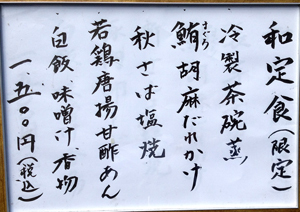 和定食(限定)
冷製茶碗蒸
鮪胡麻だれかけ
まぐろ
秋さば塩焼
若鶏唐揚甘酢あん
白飯、味噌汁、香物
一、五〇〇円(税込)